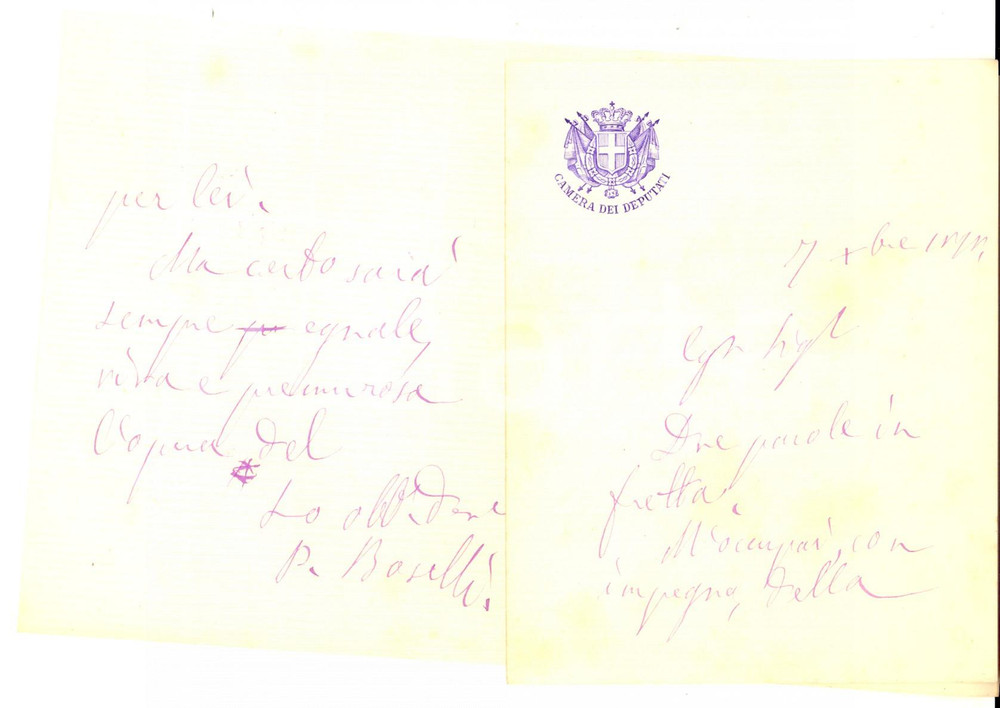 CAMERA DEI DEPUTATI
7 xbre
Egr Sigr
Due parole in
fretta.
M'occupai, con
impegno, della
per lei.
Ma certo sarà
sempre eguale,
viva e premurosa
l'opera del
Suo obb. Dev
P. Boselli.